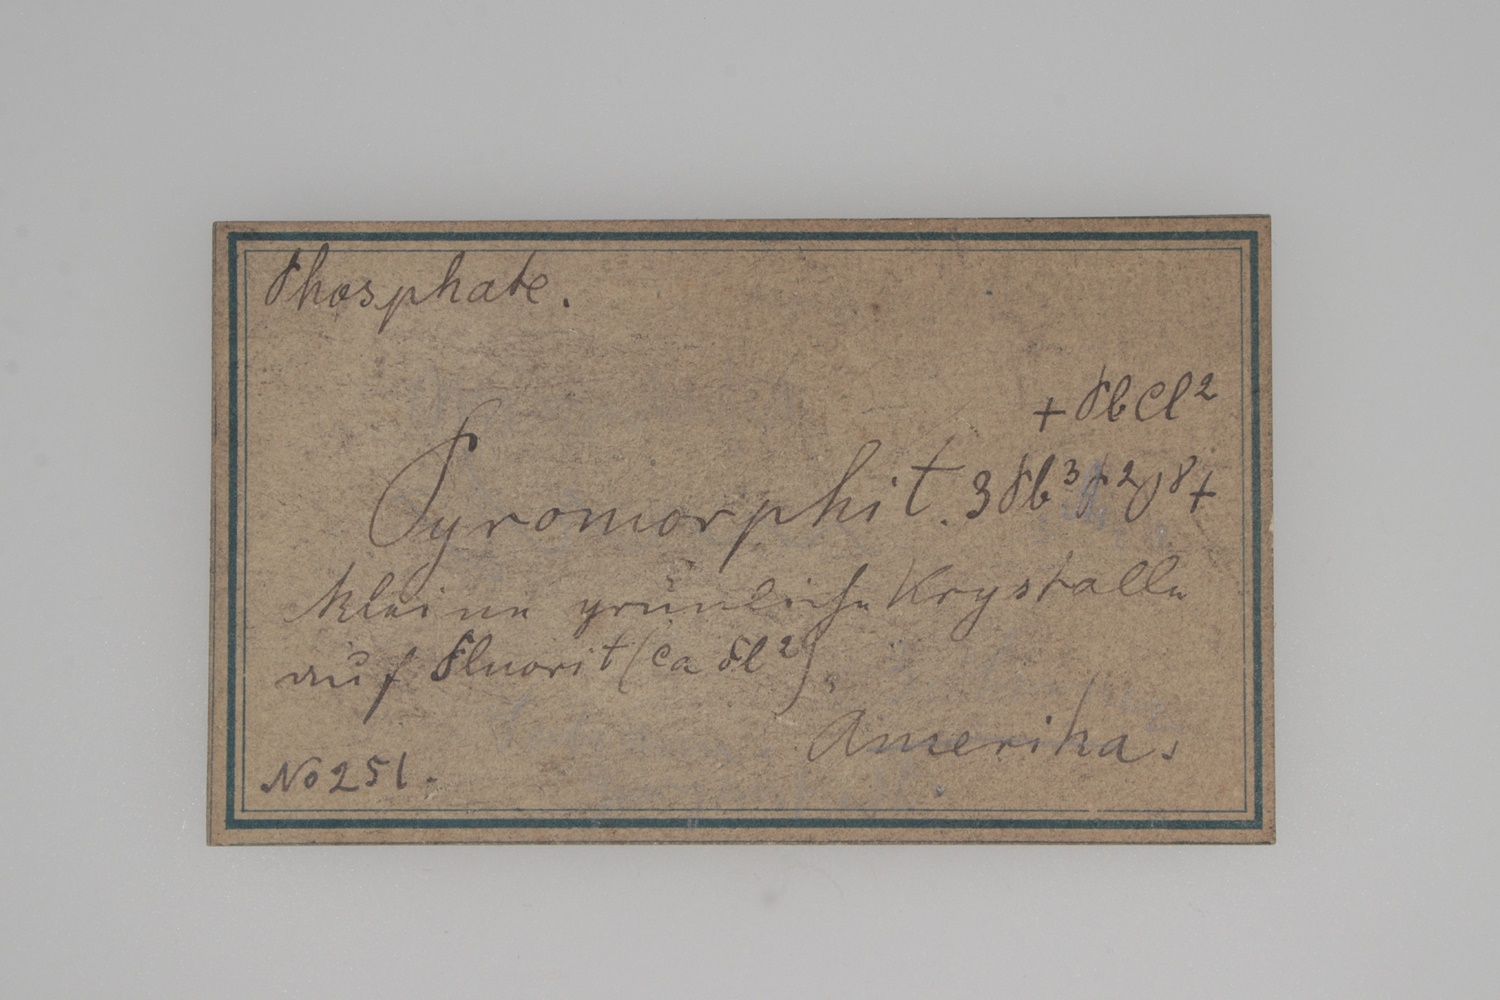 Phosphate.
+ PbCl²
Pyromorphit. 3 Pb³P²O⁸ +
kleine grünliche Krystalle
auf Fluorit (Ca Fl²).
Amerika.
No 251.